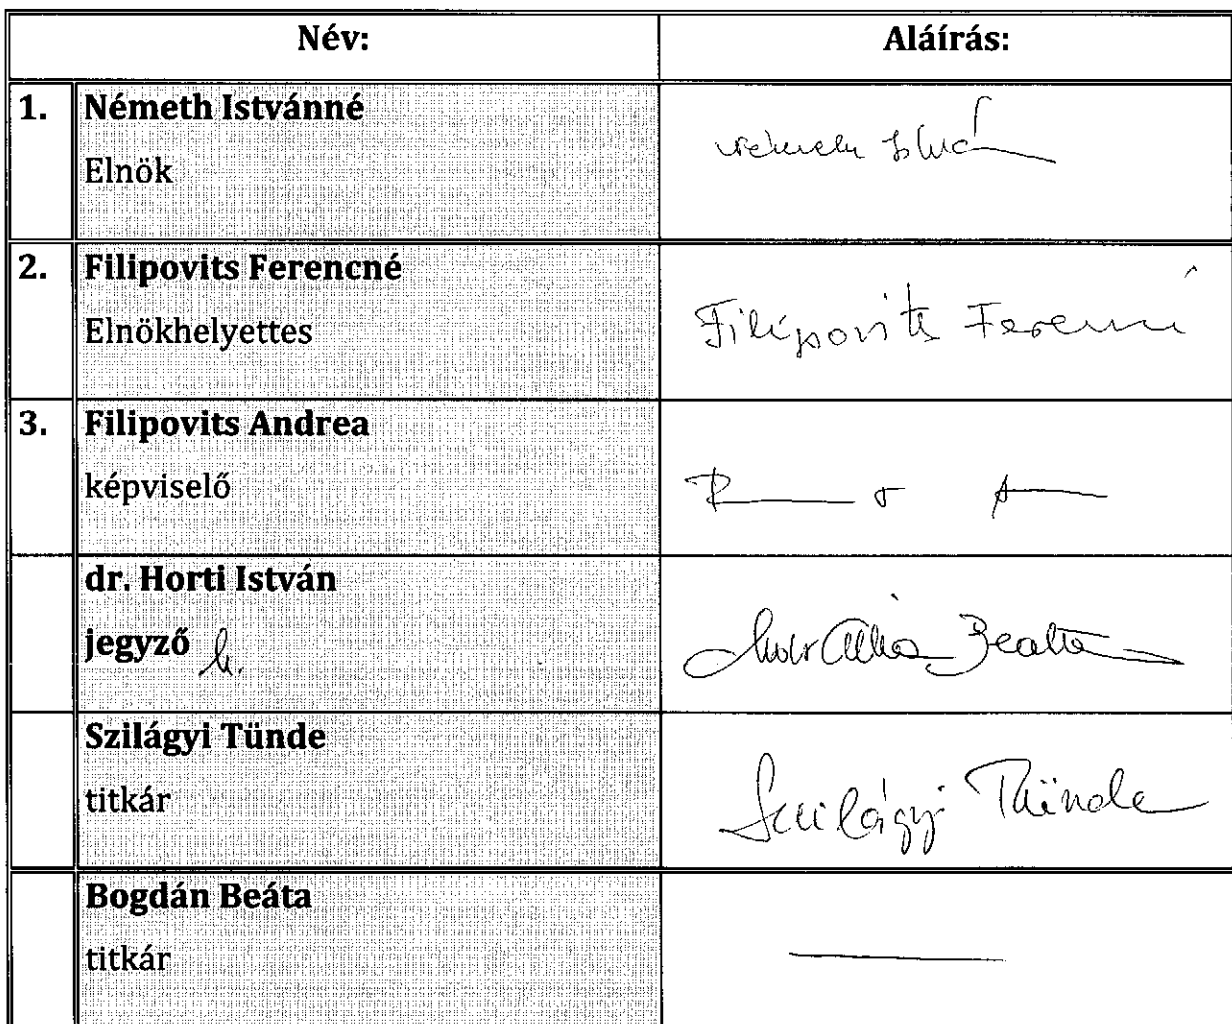 Név: Aláírás:
1. Németh Istvánné
Elnök
2. Filipovits Ferencné
Elnökhelyettes
Filipovits Ferencné
3. Filipovits Andrea
képviselő
dr. Horti István
jegyző h.
Beáta
Szilágyi Tünde
titkár
Szilágyi Tünde
Bogdán Beáta
titkár